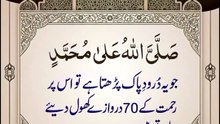 صَلَّی اللّٰہُ عَلٰی مُحَمَّدٍ
جو یہ دُرودِ پاک پڑھتا ہے تو اس پر
رحمت کے 70 دروازے کھول دیئے